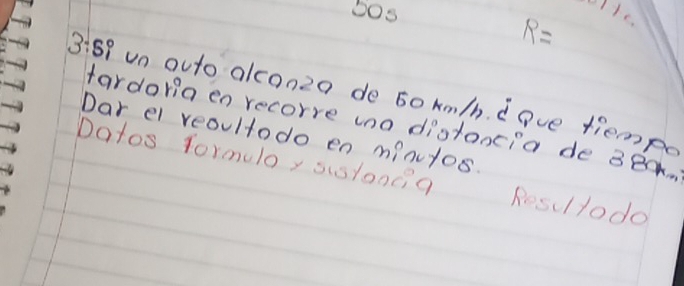 50s
R=
3: Si un auto alcanza de 60 km/h. ¿Que tiempo
tardaria en recorre una distancia de 380km?
Dar el reoultado en minutos.
Datos formula y sustancia Resultado